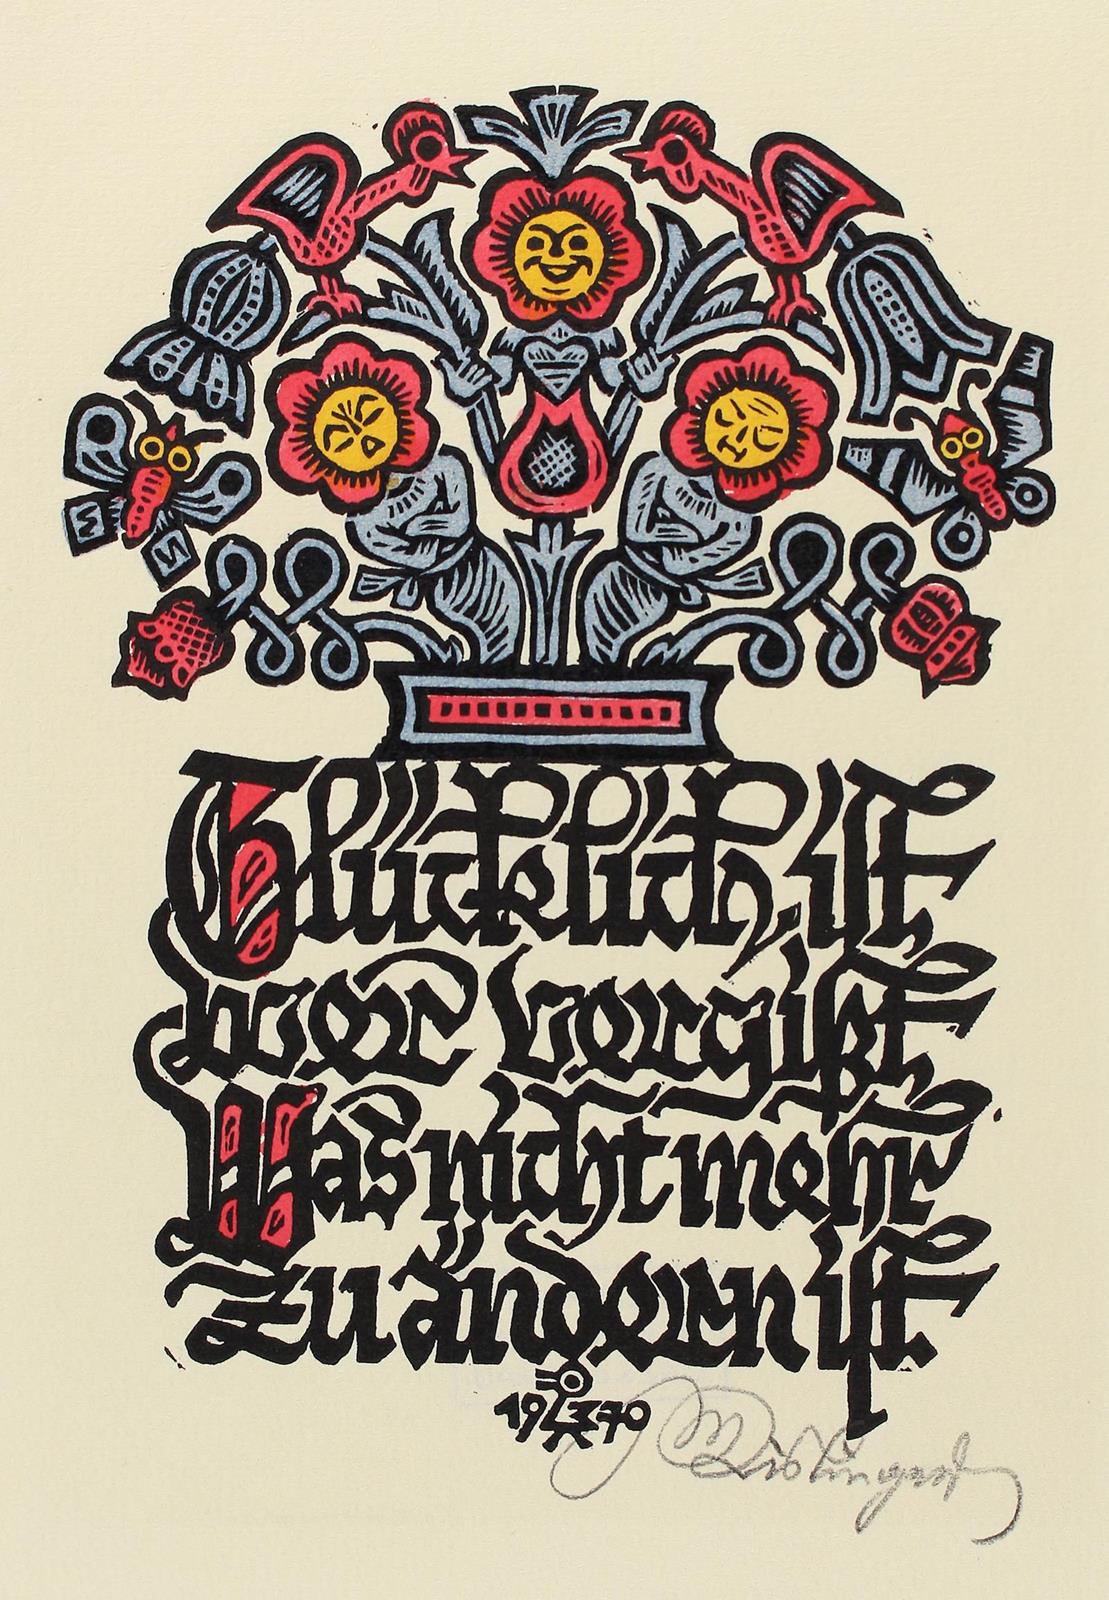 Glücklich ist
wer vergißt
Was nicht mehr
zu ändern ist
1970